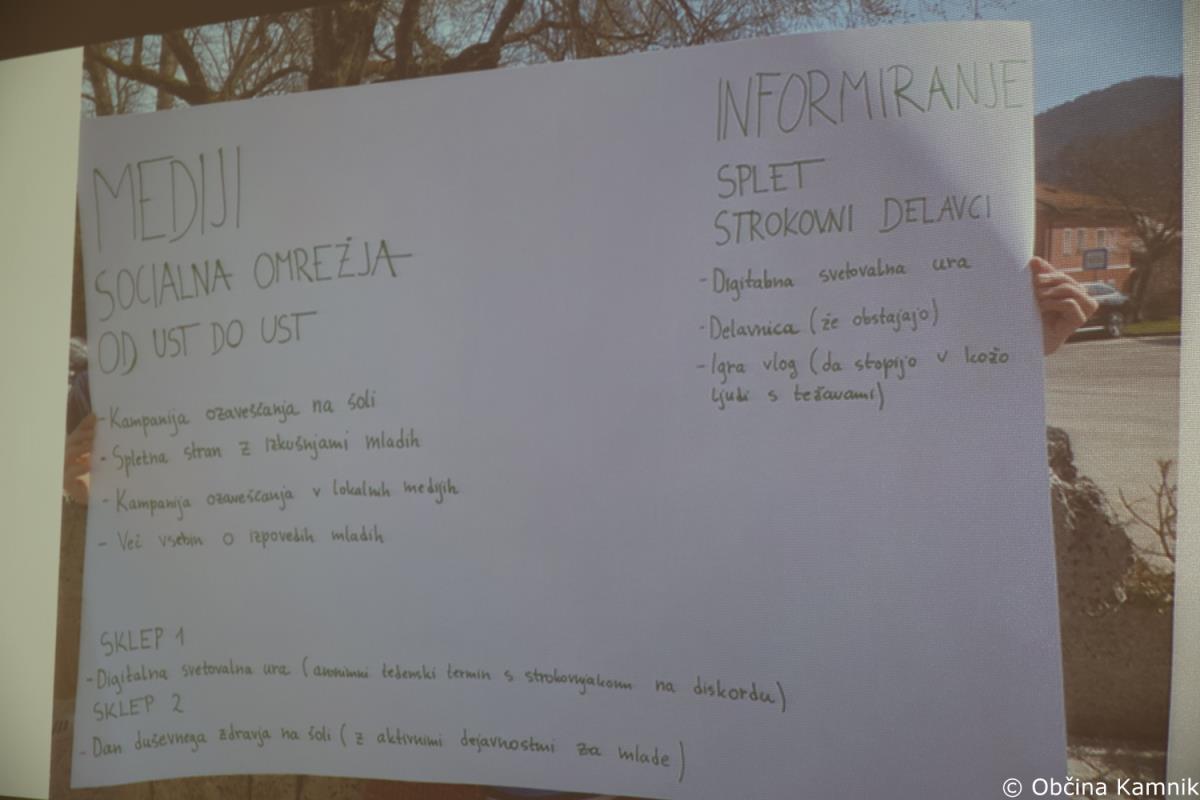 MEDIJI
SOCIALNA OMREŽJA
OD UST DO UST
- Kampanija ozaveščanja na šoli
- Spletna stran z izkušnjami mladih
- Kampanija ozaveščanja v lokalnih medijih
- Več vsebin o izpovedih mladih
INFORMIRANJE
SPLET
STROKOVNI DELAVCI
- Digitalna svetovalna ura
- Delavnica (že obstajajo)
- Igra vlog (da stopijo v kožo
ljudi s težavami)
SKLEP 1
- Digitalna svetovalna ura (anonimni tedenski termin s strokovnjakom na diskordu)
SKLEP 2
- Dan duševnega zdravja na šoli (z aktivnimi dejavnostmi za mlade)
© Občina Kamnik